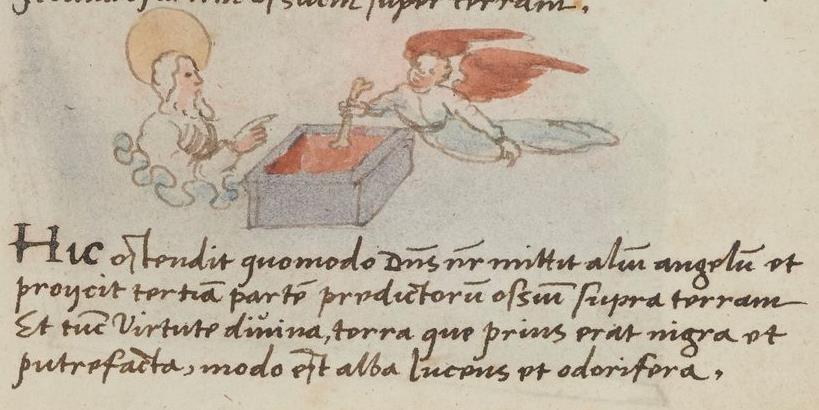 ossium super terram.
Hic ostendit quomodo Dn̄s nr̄ mittit aliū angelū et
proijcit tertiā partē predictorū ossiū supra terram
Et tūc Virtute diuina, terra que prius erat nigra et
putrefacta, modo est alba lucens et odorifera,